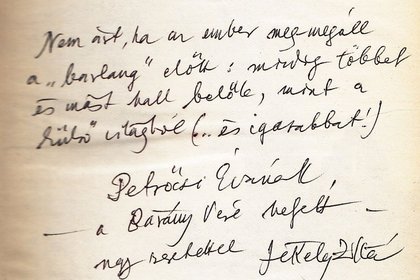 Nem árt, ha az ember meg-megáll
a „barlang” előtt: mindig többet
és mást hall belőle, mint a
külső világból (.. és igazabbat!)
Petrőcsi Évának
— a Bárány Vére mellett —
nagy szeretettel Jékely Zoltán